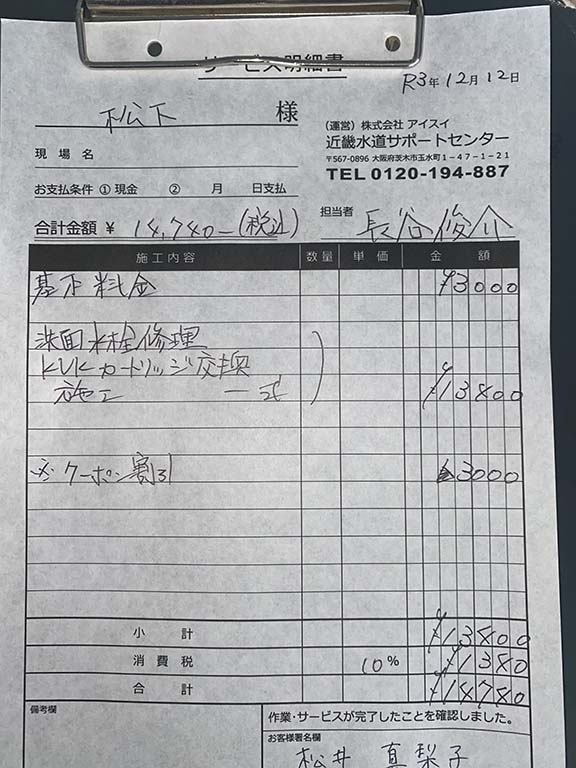 サービス明細書
R3年12月12日
松下 様
現場名
お支払条件 ①現金 ② 月 日支払
合計金額 ¥ 14,740-(税込)
(運営)株式会社 アイスイ
近畿水道サポートセンター
〒567-0896 大阪府茨木市玉水町1-47-1-21
TEL 0120-194-887
担当者 長谷俊介
施工内容 数量 単価 金額
基本料金 ¥3000
洗面水栓修理
KVKカートリッジ交換
施工 一式 ¥13800
※クーポン割引 3000
小計 ¥13800
消費税 10% ¥1380
合計 ¥14780
備考欄
作業・サービスが完了したことを確認しました。
お客様署名欄
松井 真梨子